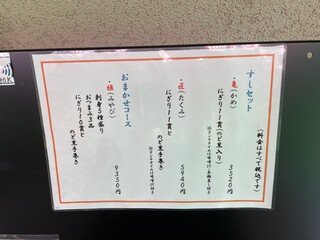 すしセット
(料金はすべて税込です)
・亀(かめ)
にぎり11貫(のど黒入り)
3520円
・匠(たくみ)
にぎり11貫と
のど黒手巻き
5940円
おまかせコース
・雅(みやび)
刺身5種盛り
おつまみ3品
にぎり10貫と
のど黒手巻き
9350円